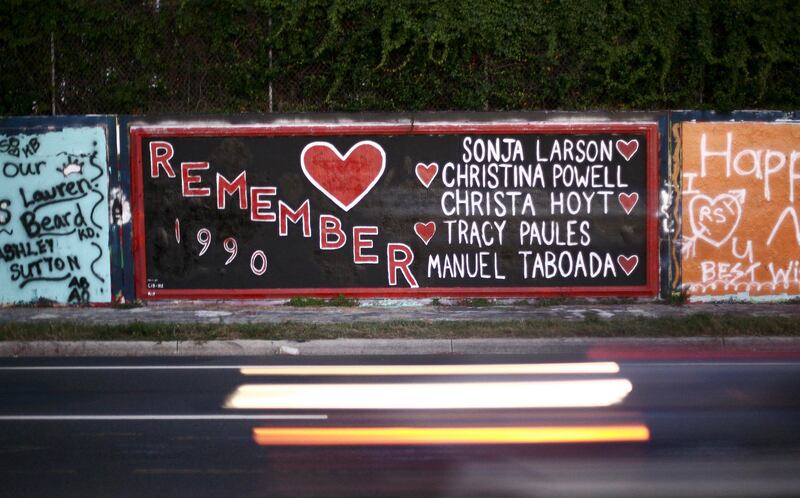 our
Lauren
Beard KD.
ASHLEY
SUTTON
REMEMBER
1990
SONJA LARSON
CHRISTINA POWELL
CHRISTA HOYT
TRACY PAULES
MANUEL TABOADA
Happ
I
RS
U
BEST Wi